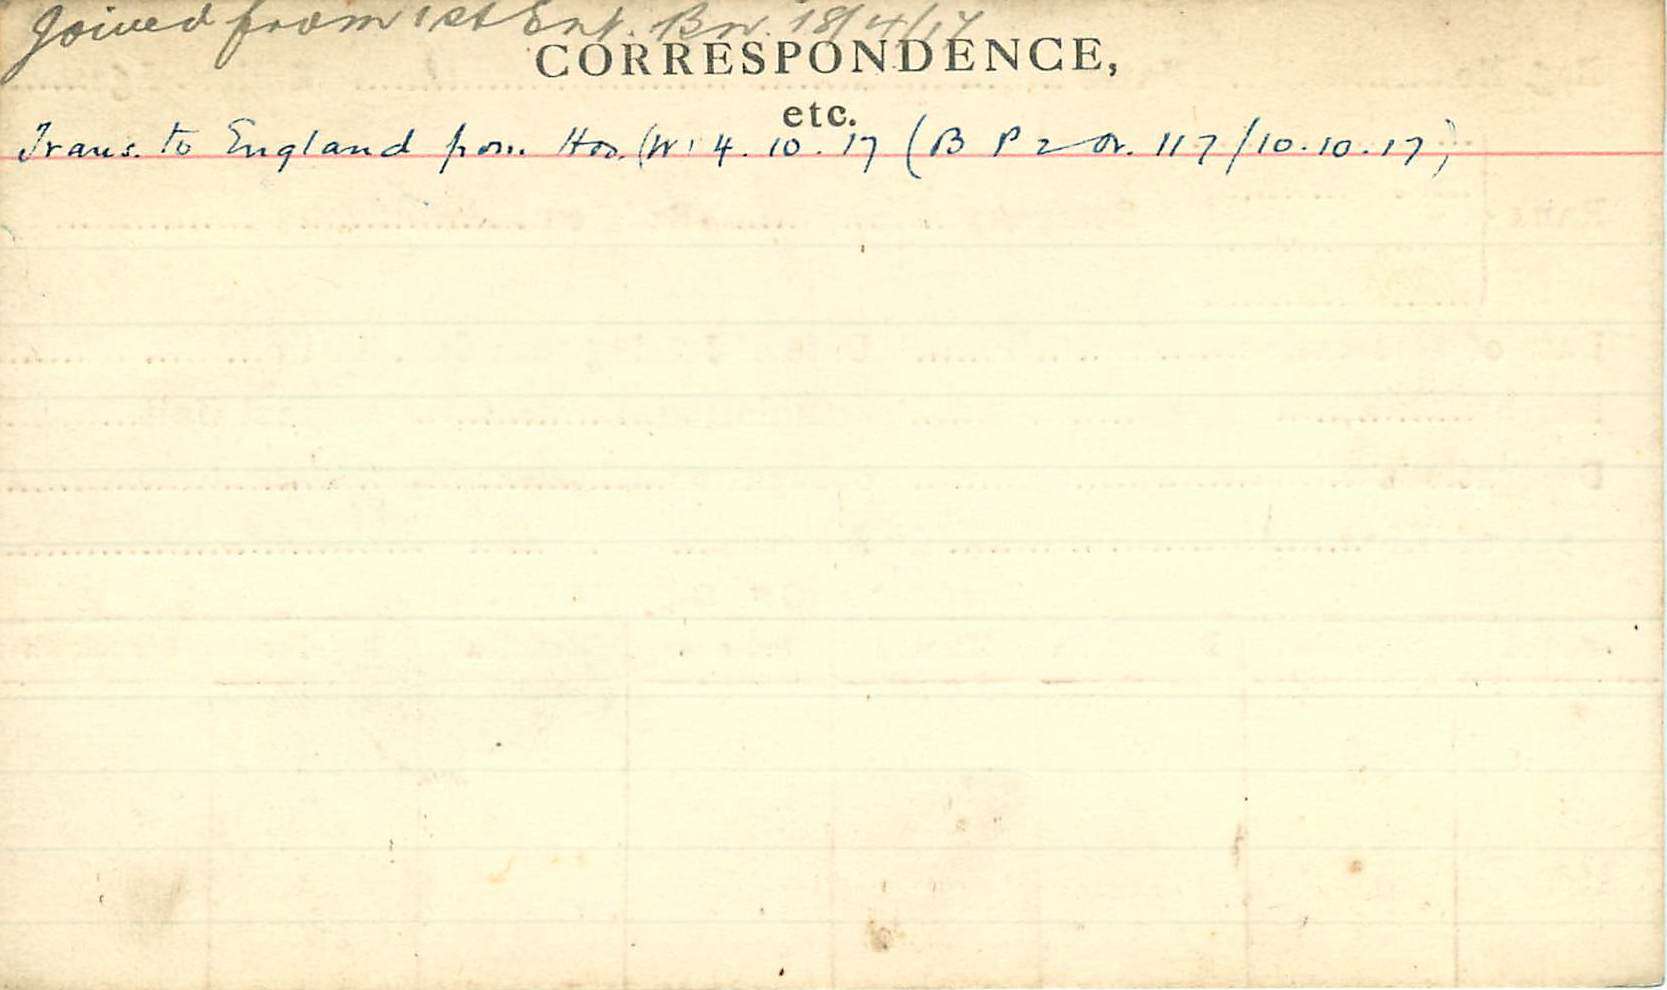 Joined from 1st Ent. Bn. 18/4/17
CORRESPONDENCE,
etc.
Trans. to England from Hos. (W) 4.10.17 (B P 2 Or. 117/10.10.17)